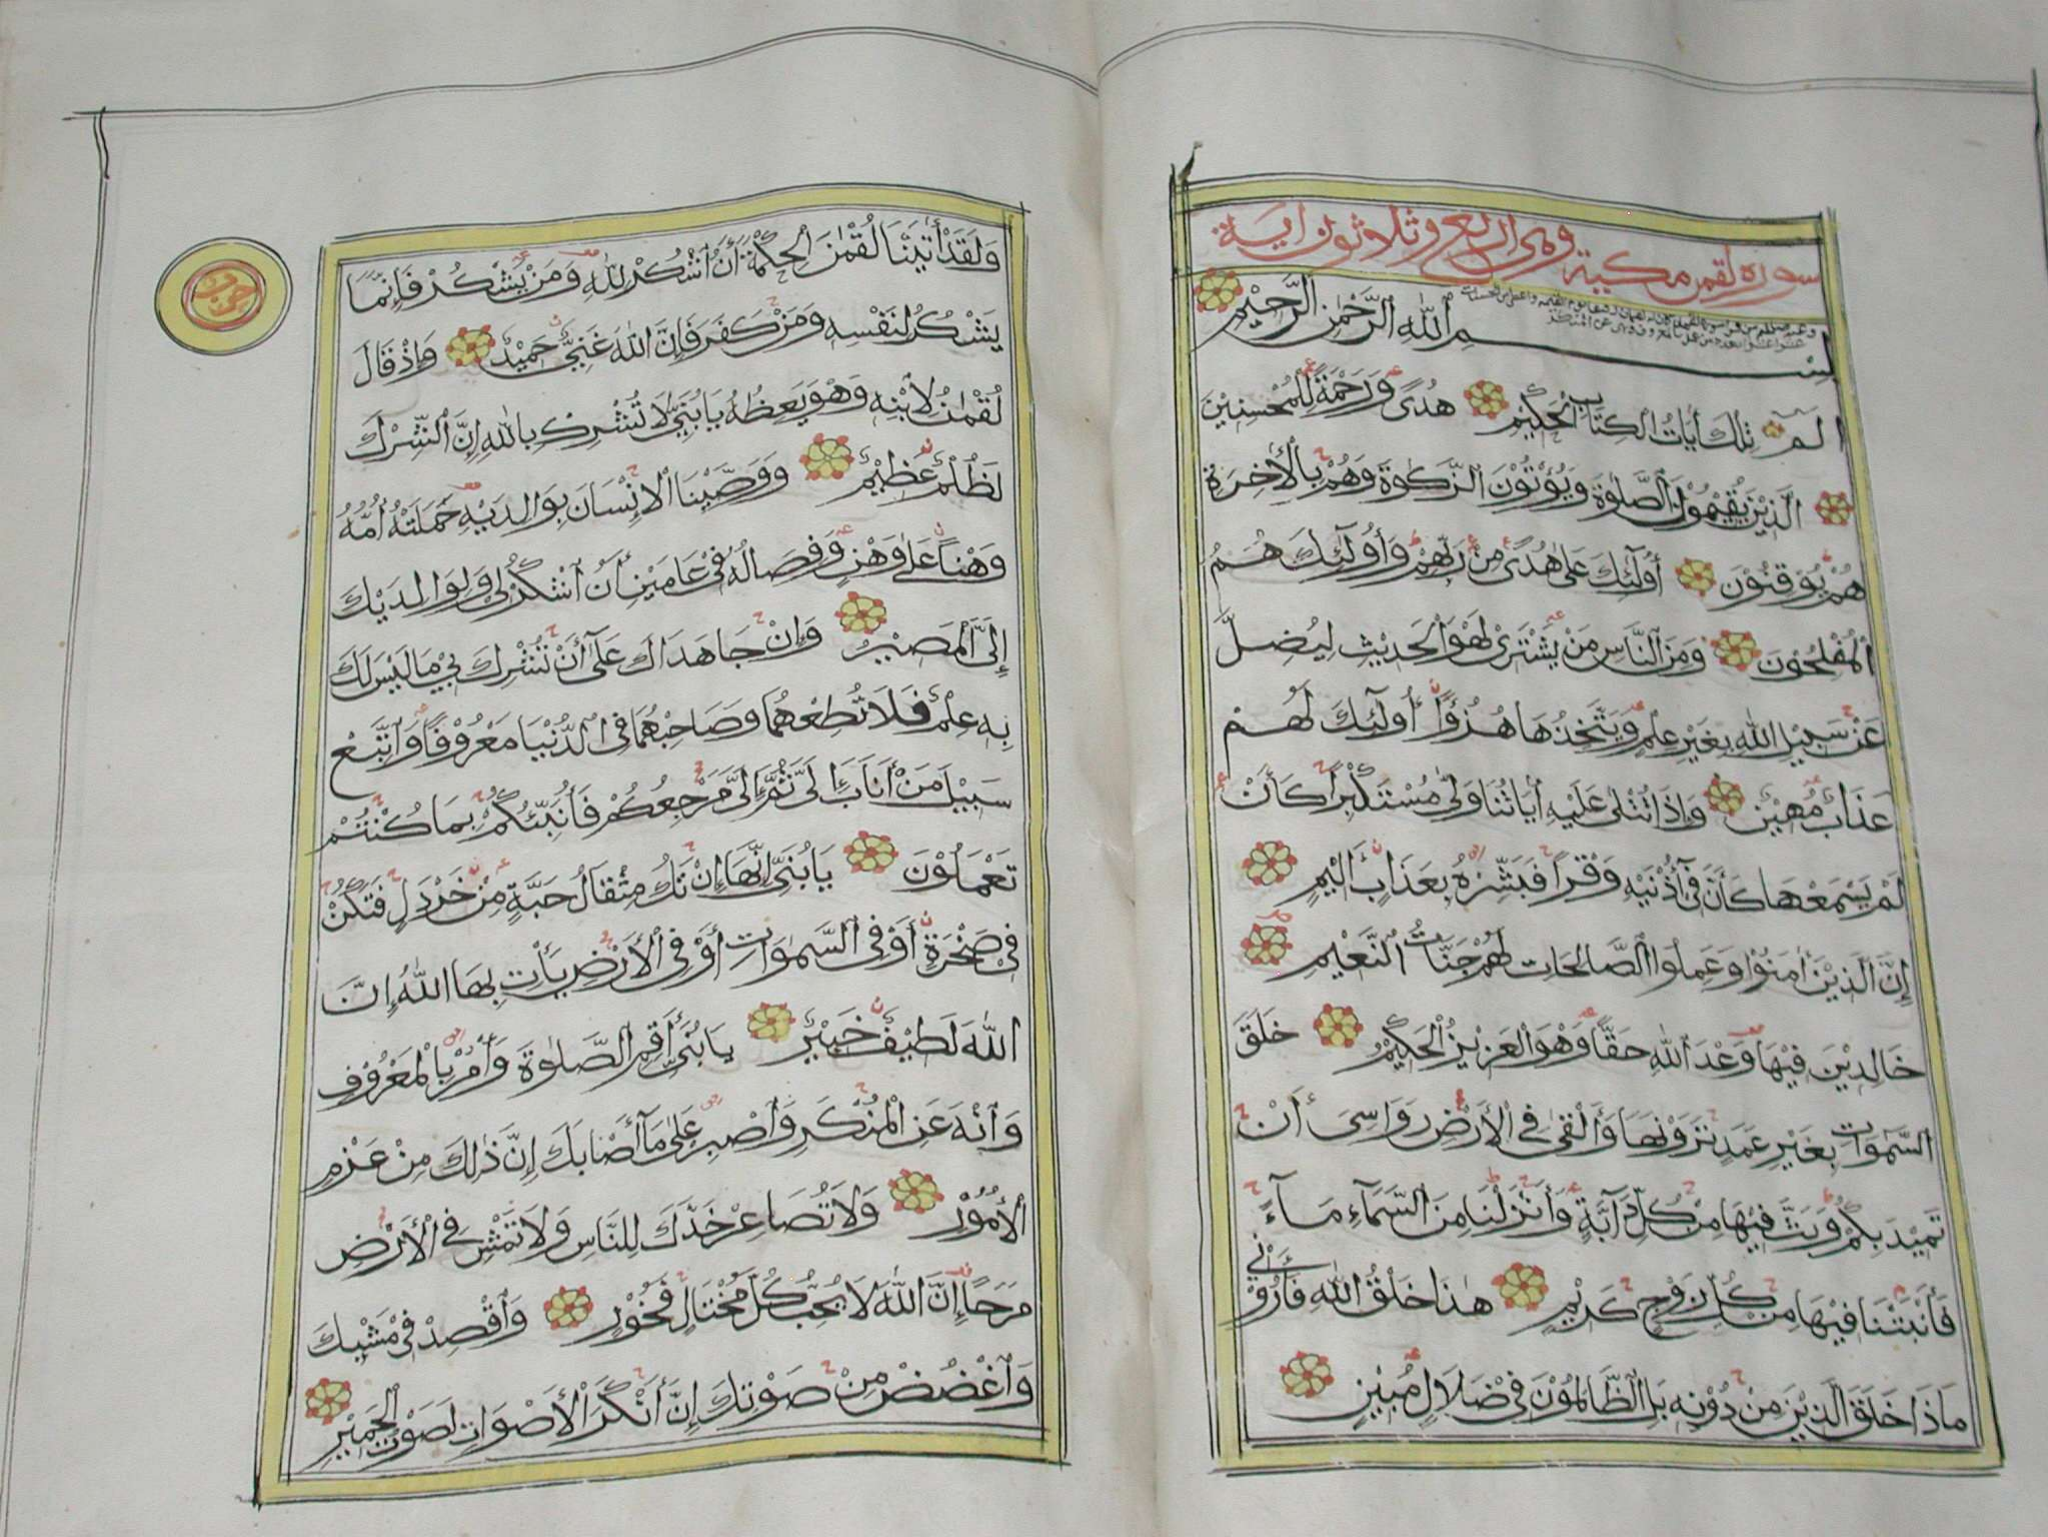 سورة لقمن مكية وهى اربع وثلاثون اية
بِسْمِ اللهِ الرَّحْمٰنِ الرَّحِيْمِ
الٓمٓ تِلْكَ أٰيَاتُ الْكِتَابِ الْحَكِيْمِ هُدًى وَرَحْمَةً لِلْمُحْسِنِيْنَ
الَّذِيْنَ يُقِيْمُوْنَ الصَّلٰوةَ وَيُؤْتُوْنَ الزَّكٰوةَ وَهُمْ بِالْأٰخِرَةِ
هُمْ يُوْقِنُوْنَ أُولٰٓئِكَ عَلٰى هُدًى مِنْ رَبِّهِمْ وَأُولٰٓئِكَ هُمُ
الْمُفْلِحُوْنَ وَمِنَ النَّاسِ مَنْ يَشْتَرِيْ لَهْوَ الْحَدِيْثِ لِيُضِلَّ
عَنْ سَبِيْلِ اللهِ بِغَيْرِ عِلْمٍ وَيَتَّخِذُهَا هُزُؤًا أُولٰٓئِكَ لَهُمْ
عَذَابٌ مُهِيْنٌ وَإِذَا تُتْلٰى عَلَيْهِ أٰيَاتُنَا وَلّٰى مُسْتَكْبِرًا كَأَنْ
لَمْ يَسْمَعْهَا كَأَنَّ فِيْٓ أُذْنَيْهِ وَقْرًا فَبَشِّرْهُ بِعَذَابٍ أَلِيْمٍ
إِنَّ الَّذِيْنَ أٰمَنُوْا وَعَمِلُوا الصَّالِحَاتِ لَهُمْ جَنَّاتُ النَّعِيْمِ
خَالِدِيْنَ فِيْهَا وَعْدَ اللهِ حَقًّا وَهُوَ الْعَزِيْزُ الْحَكِيْمُ خَلَقَ
السَّمٰوَاتِ بِغَيْرِ عَمَدٍ تَرَوْنَهَا وَأَلْقٰى فِي الْأَرْضِ رَوَاسِيَ أَنْ
تَمِيْدَ بِكُمْ وَبَثَّ فِيْهَا مِنْ كُلِّ دَآبَّةٍ وَأَنْزَلْنَا مِنَ السَّمَآءِ مَآءً
فَأَنْبَتْنَا فِيْهَا مِنْ كُلِّ زَوْجٍ كَرِيْمٍ هٰذَا خَلْقُ اللهِ فَأَرُوْنِيْ
مَاذَا خَلَقَ الَّذِيْنَ مِنْ دُوْنِهِ بَلِ الظَّالِمُوْنَ فِيْ ضَلَالٍ مُبِيْنٍ
وَلَقَدْ أٰتَيْنَا لُقْمٰنَ الْحِكْمَةَ أَنِ اشْكُرْ لِلهِ وَمَنْ يَشْكُرْ فَإِنَّمَا
يَشْكُرُ لِنَفْسِهِ وَمَنْ كَفَرَ فَإِنَّ اللهَ غَنِيٌّ حَمِيْدٌ وَإِذْ قَالَ
لُقْمٰنُ لِابْنِهِ وَهُوَ يَعِظُهُ يَابُنَيَّ لَا تُشْرِكْ بِاللهِ إِنَّ الشِّرْكَ
لَظُلْمٌ عَظِيْمٌ وَوَصَّيْنَا الْإِنْسَانَ بِوَالِدَيْهِ حَمَلَتْهُ أُمُّهُ
وَهْنًا عَلٰى وَهْنٍ وَفِصَالُهُ فِيْ عَامَيْنِ أَنِ اشْكُرْ لِيْ وَلِوَالِدَيْكَ
إِلَيَّ الْمَصِيْرُ وَإِنْ جَاهَدَاكَ عَلٰٓى أَنْ تُشْرِكَ بِيْ مَا لَيْسَ لَكَ
بِهِ عِلْمٌ فَلَا تُطِعْهُمَا وَصَاحِبْهُمَا فِي الدُّنْيَا مَعْرُوْفًا وَاتَّبِعْ
سَبِيْلَ مَنْ أَنَابَ إِلَيَّ ثُمَّ إِلَيَّ مَرْجِعُكُمْ فَأُنَبِّئُكُمْ بِمَا كُنْتُمْ
تَعْمَلُوْنَ يَابُنَيَّ إِنَّهَا إِنْ تَكُ مِثْقَالَ حَبَّةٍ مِنْ خَرْدَلٍ فَتَكُنْ
فِيْ صَخْرَةٍ أَوْ فِي السَّمٰوَاتِ أَوْ فِي الْأَرْضِ يَأْتِ بِهَا اللهُ إِنَّ
اللهَ لَطِيْفٌ خَبِيْرٌ يَابُنَيَّ أَقِمِ الصَّلٰوةَ وَأْمُرْ بِالْمَعْرُوْفِ
وَانْهَ عَنِ الْمُنْكَرِ وَاصْبِرْ عَلٰى مَآ أَصَابَكَ إِنَّ ذٰلِكَ مِنْ عَزْمِ
الْأُمُوْرِ وَلَا تُصَاعِرْ خَدَّكَ لِلنَّاسِ وَلَا تَمْشِ فِي الْأَرْضِ
مَرَحًا إِنَّ اللهَ لَا يُحِبُّ كُلَّ مُخْتَالٍ فَخُوْرٍ وَاقْصِدْ فِيْ مَشْيِكَ
وَاغْضُضْ مِنْ صَوْتِكَ إِنَّ أَنْكَرَ الْأَصْوَاتِ لَصَوْتُ الْحَمِيْرِ